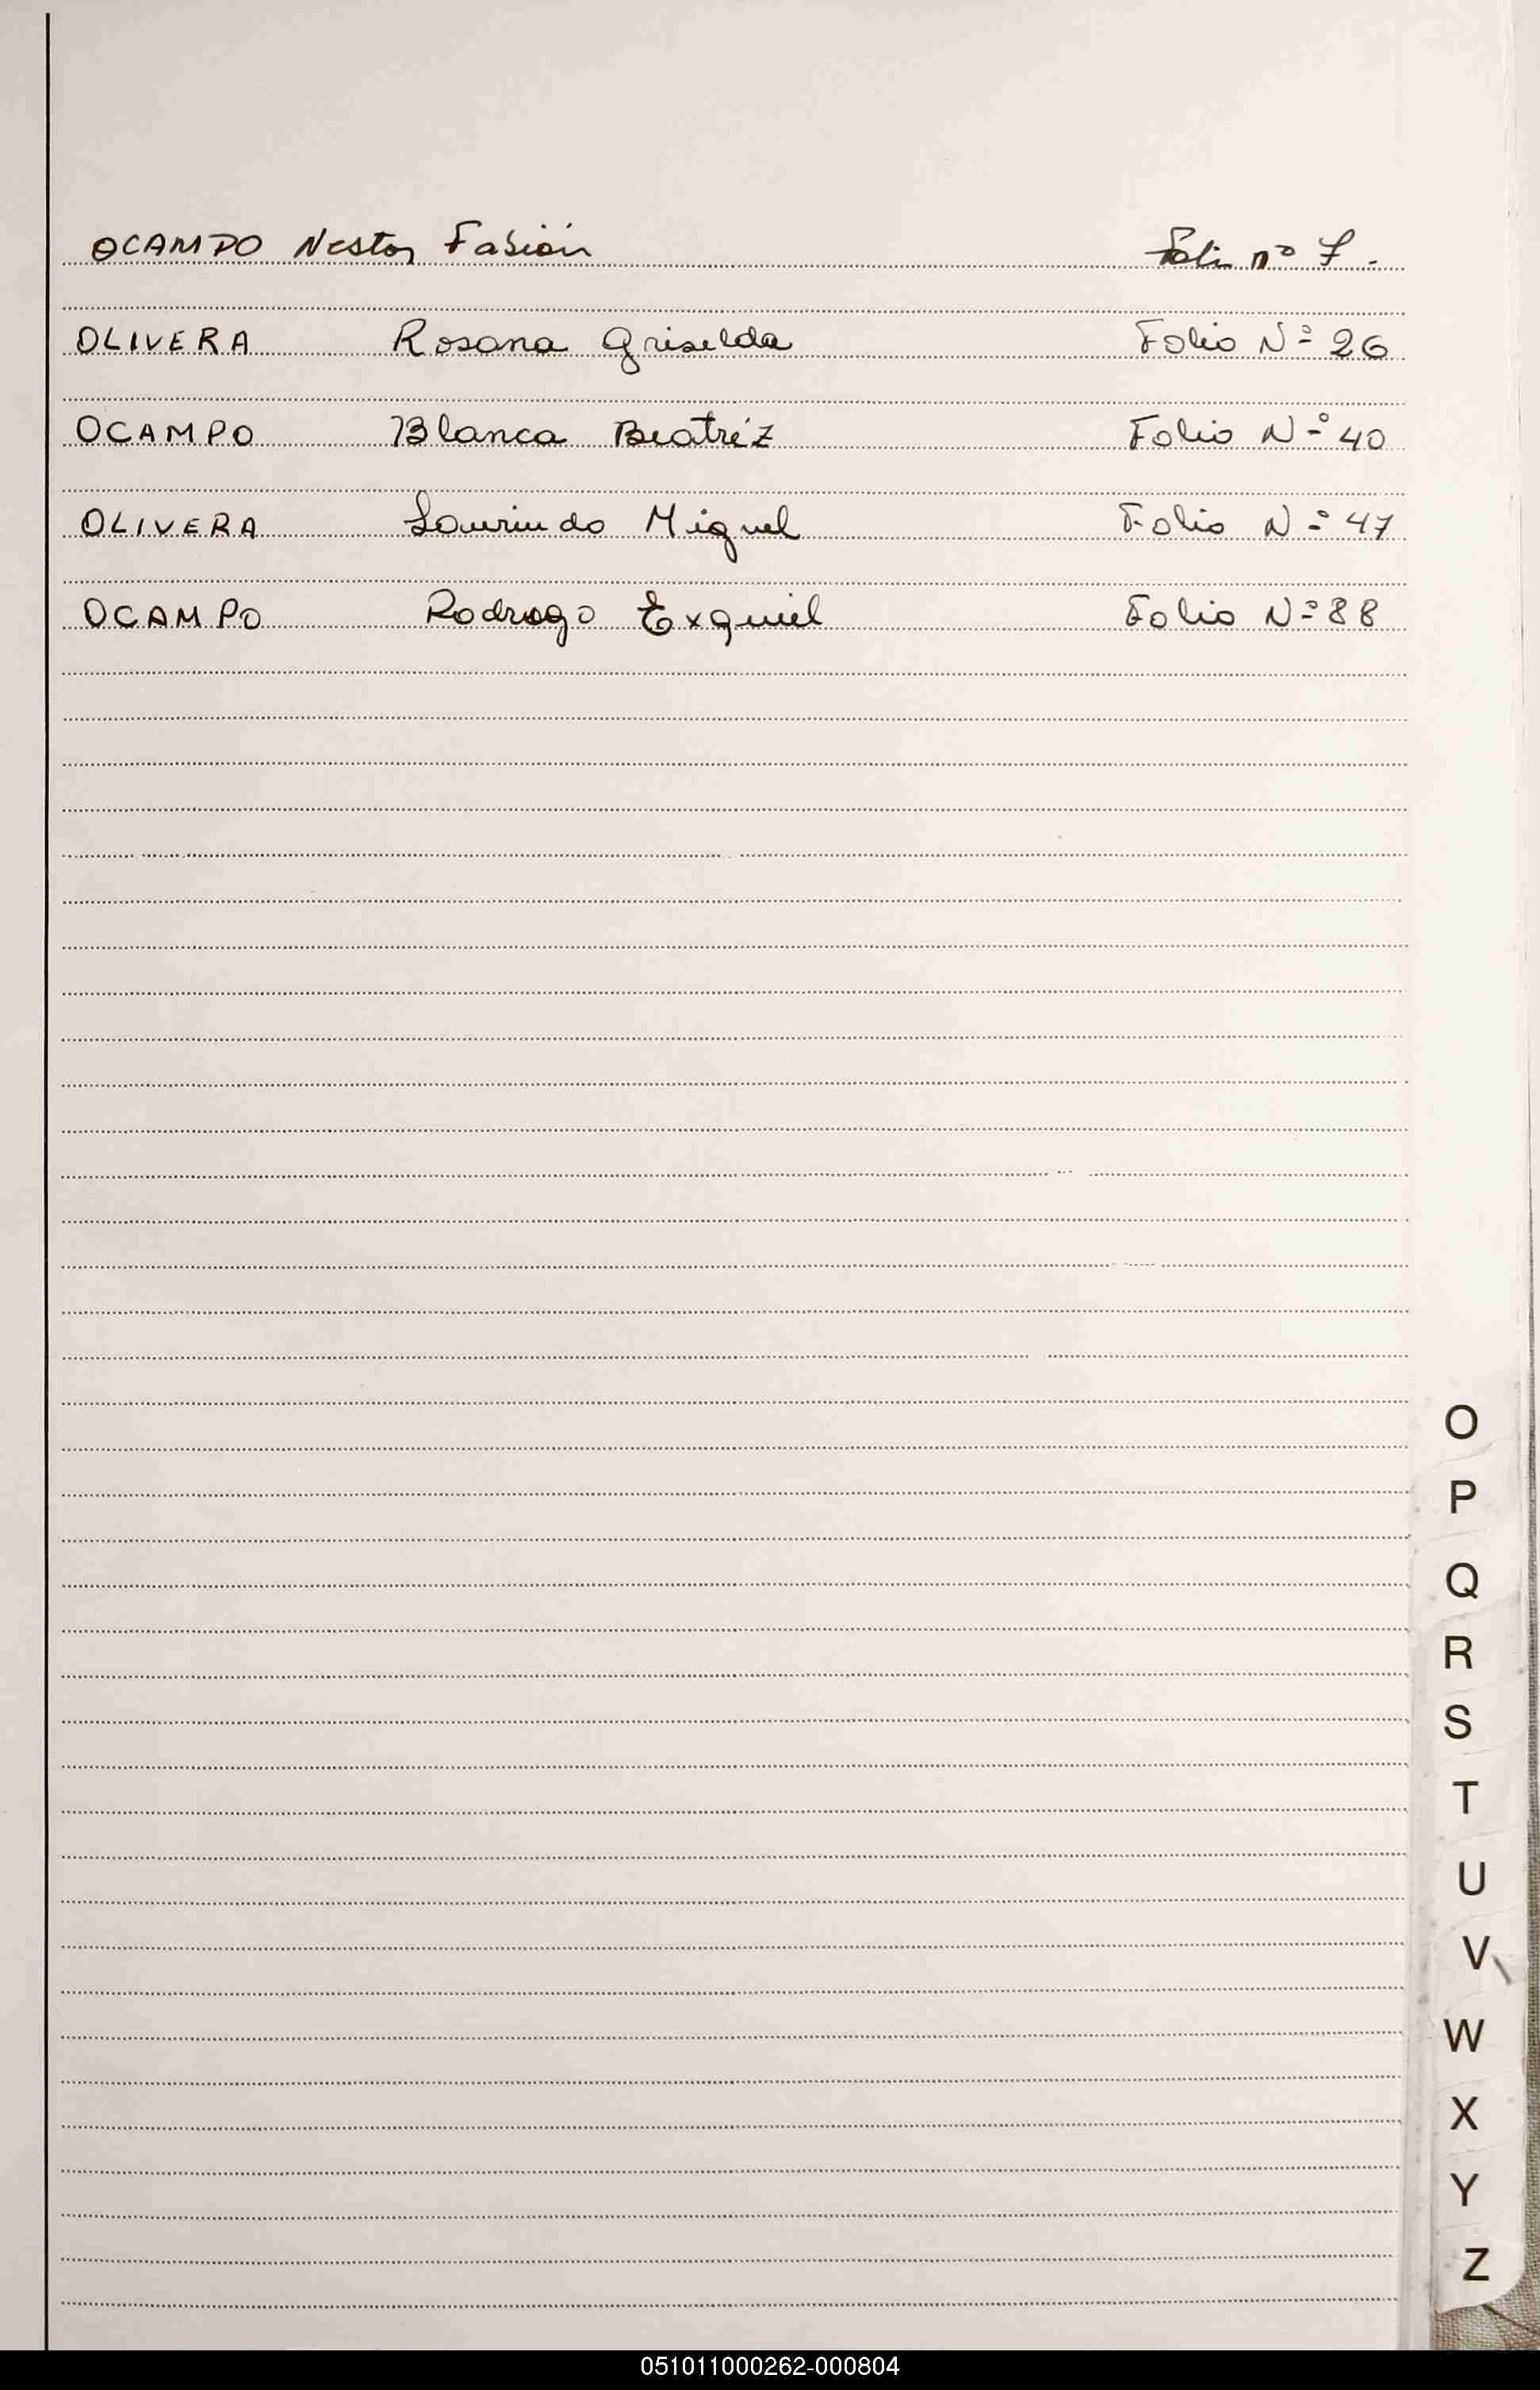 OCAMPO Nestor Fabián Folio nº 7.-
OLIVERA Rosana Griselda Folio Nº 26
OCAMPO Blanca Beatríz Folio Nº 40
OLIVERA Laurindo Miguel Folio Nº 47
OCAMPO Rodrogo Exquiel Folio Nº 88
O
P
Q
R
S
T
U
V
W
X
Y
Z
051011000262-000804